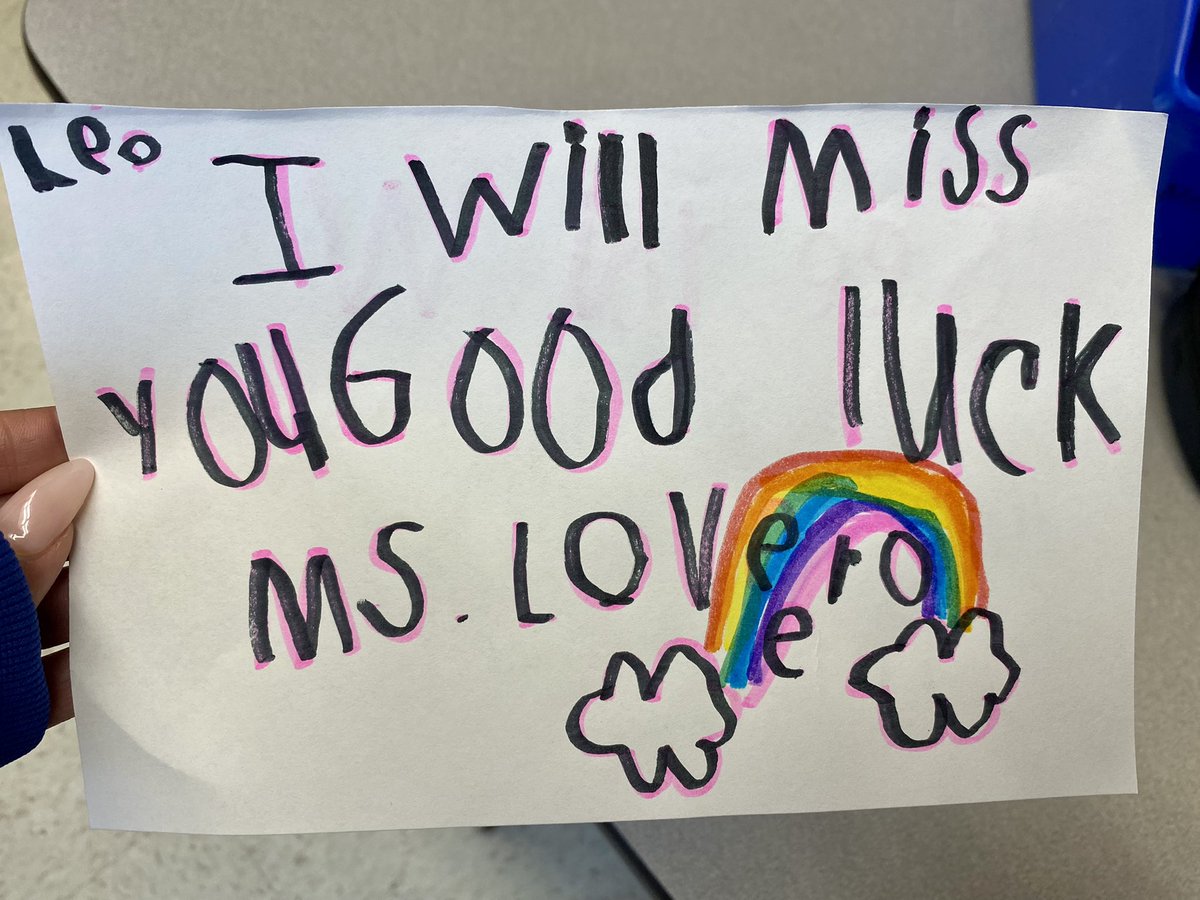 Leo
I Will Miss
you Good luck
Ms. Lovero
e